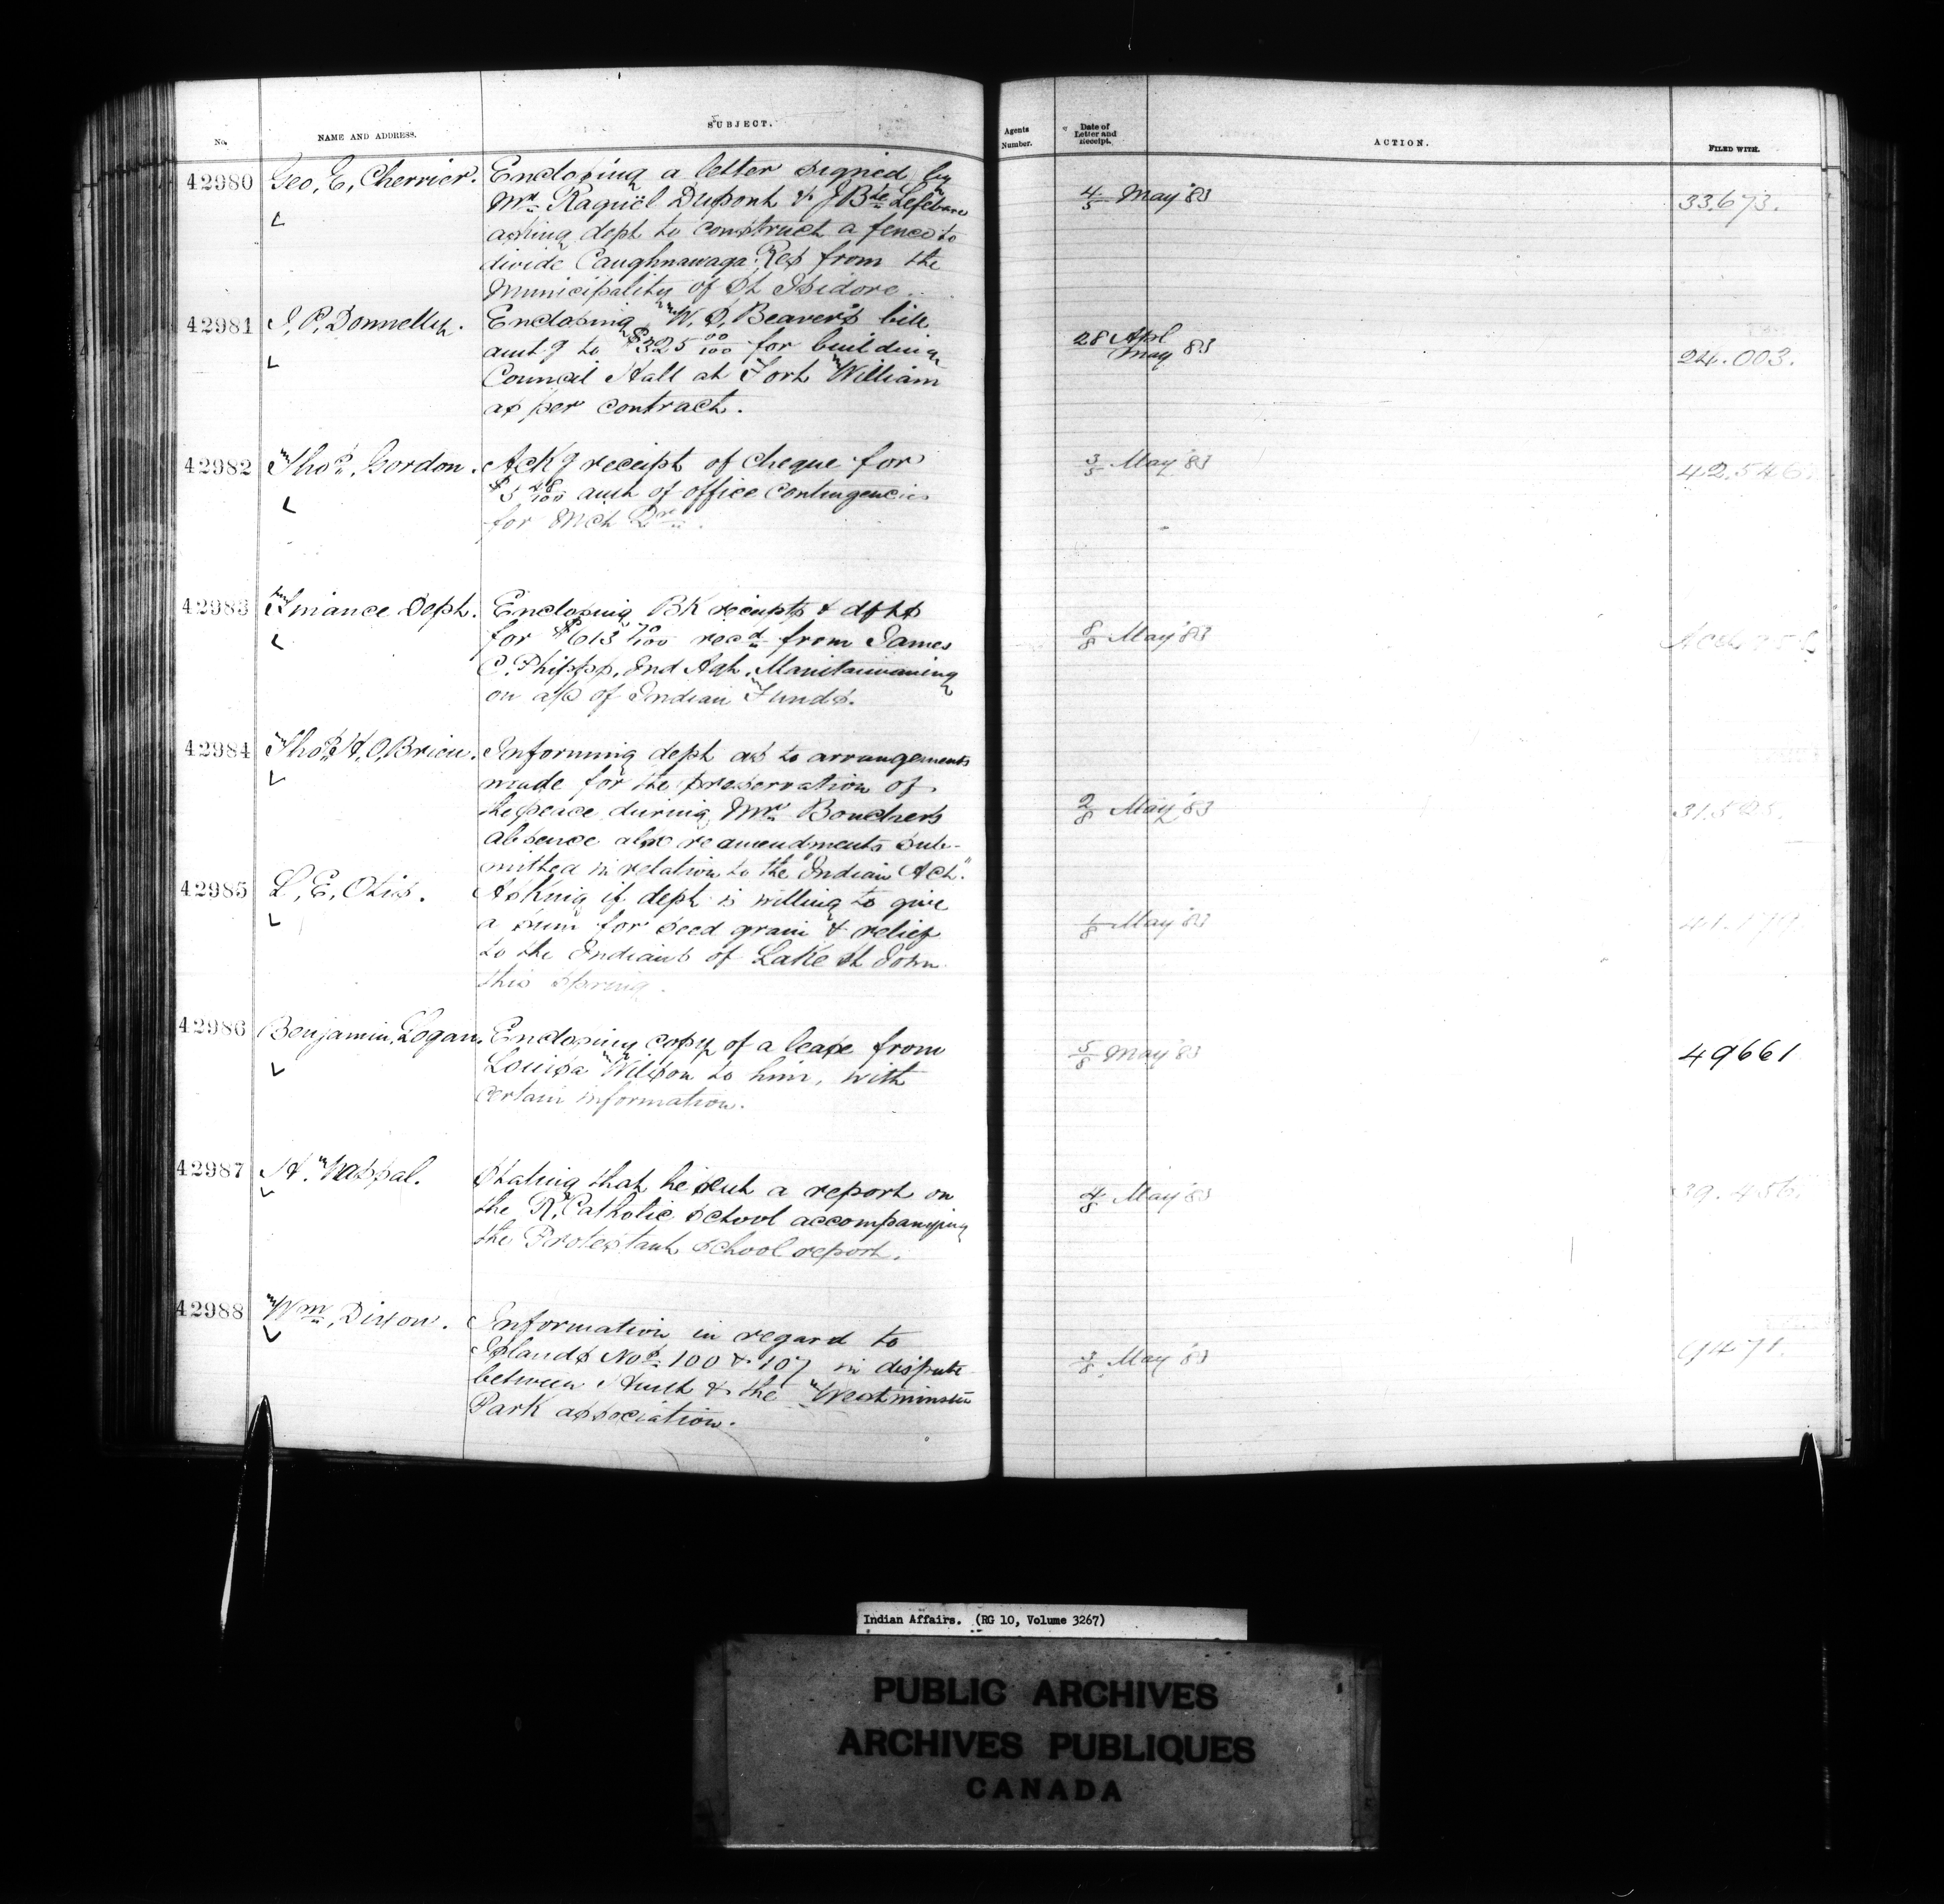 No. NAME AND ADDRESS. SUBJECT. Agents Number. Date of Letter and Receipt. ACTION. FILED WITH.
42980 Geo. E, Cherrier. Enclosing a letter signed by
Mr. Raquel Dupont & J Bte Lefebvre
asking dept to construct a fence to
divide Caughnawaga Res from the
Municipality of St Isidore.
4/5 May '83 33.673.
42981 J, P, Donnelly. Enclosing W. S, Beaver's bill
amtg to $325 00/100 for building
Council Hall at Fort William
as per contract.
28 Aprl May 83 24.003.
42982 Thos, Gordon. Ackg receipt of cheque for
$5 48/100 amt of office contingencies
for Mch
3/5 May '83 42.546.
42983 Finance Dept. Enclosing BK receipts & dfts
for $613 recd from James
C. Phipps, Ind Agt, Manitowaning
on a/c of Indian Funds.
8/8 May '83
42984 Thos. H. O,Brien. Informing dept as to arrangements
made for the preservation of
the peace during Mr. Boucher's
absence also re amendments sub-
mitted in relation to the "Indian Act."
2/8 May '83
42985 L, E, Otis. Asking if dept is willing to give
a sum for seed grain & relief
to the Indians of Lake St John
this spring.
1/8 May '83
42986 Benjamin, Logan. Enclosing copy of a lease from
Louisa Wilson to him, with
certain information.
5/8 May '83 49661
42987 H. Vassal. Stating that he sent a report on
the R. Catholic school accompanying
the Protestant school report.
4/8 May '83 39.456.
42988 Wm, Dixon. Information in regard to
Islands Nos. 100 & 107 in dispute
between & the Westminster
Park association.
3/8 May '83
Indian Affairs. (RG 10, Volume 3267)
PUBLIC ARCHIVES
ARCHIVES PUBLIQUES
CANADA